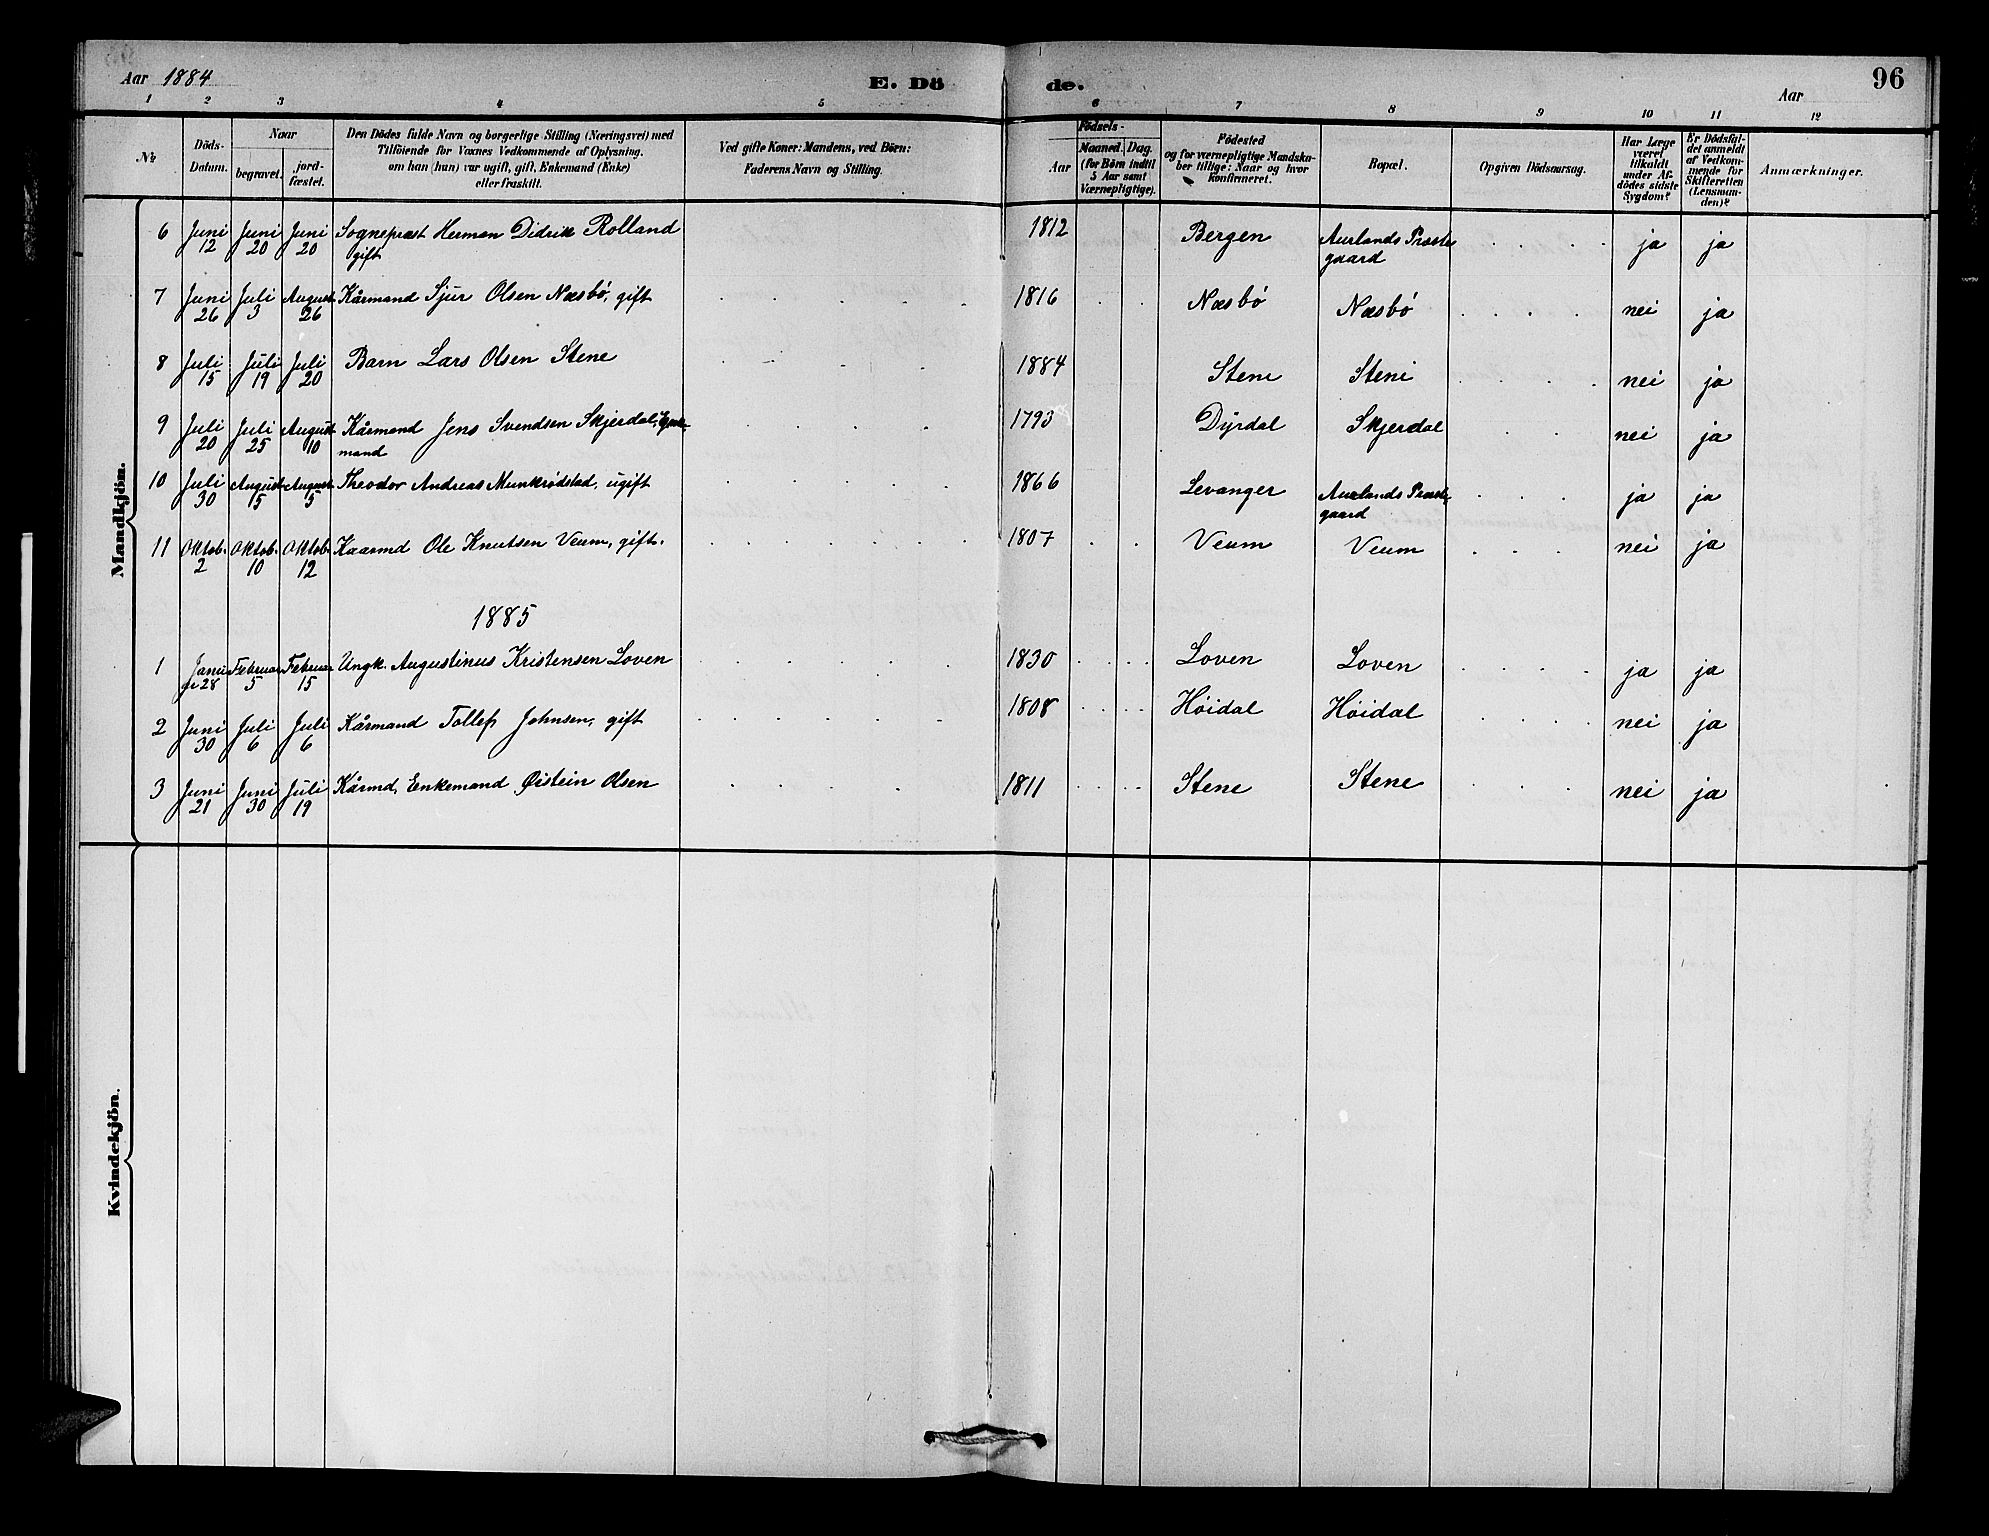 Aar 1884
E. Dö
de.
Aar
96
1 2 3 4 5 6 7 8 9 10 11 12
№
Döds-
Datum.
Naar
begravet.
jord-
fæstet.
Den Dödes fulde Navn og borgerlige Stilling (Næringsvei) med
Tilföiende for Voxnes Vedkommende af Oplysning,
om han (hun) var ugift, gift, Enkemand (Enke)
eller fraskilt.
Ved gifte Koner: Mandens, ved Börn:
Faderens Navn og Stilling.
Födsels-
Aar
Maaned.
Dag.
(for Börn indtil
5 Aar samt
Værnepligtige).
Födested
og for værnepligtige Mandska-
ber tillige: Naar og hvor
konfirmeret.
Bopæl.
Opgiven Dödsaarsag.
Har Læge
været
tilkaldt
under Af-
dödes sidste
Sygdom?
Er Dödsfal-
det anmeldt
af Vedkom-
mende for
Skifteretten
(Lensman-
den)?
Anmærkninger.
Mandkjön.
6 Juni 12 Juni 20 Juni 20 Sognepræst Herman Didrik Rolland 1812 Bergen Aurlands Præste ja ja
gift gaard
7 Juni 26 Juli 3 August 26 Kårmand Sjur Olsen Næsbö, gift 1816 Næsbö Næsbö nei ja
8 Juli 15 Juli 19 Juli 20 Barn Lars Olsen Stene 1884 Stene Stene nei ja
9 Juli 20 Juli 25 August 10 Kårmand Jens Svendsen Skjerdal, Enke- 1793 Dyrdal Skjerdal nei ja
mand
10 Juli 30 August 15 August 5 Theodor Andreas Munkrødstad, ugift 1866 Levanger Aurlands Præste ja ja
gaard
11 Oktob. 2 Oktob. 10 Oktob. 12 Kaarmd Ole Knutsen Veum, gift. 1807 Veum Veum nei ja
1885
1 Januar 28 Februar 5 Februar 15 Ungk. Augustinus Kristensen Loven 1830 Loven Loven ja ja
2 Juni 30 Juli 6 Juli 6 Kårmand Tollef Johnsen, gift 1808 Høidal Høidal nei ja
3 Juni 21 Juni 30 Juli 19 Kårmd, Enkemand Øistein Olsen 1811 Stene Stene nei ja
Kvindekjön.